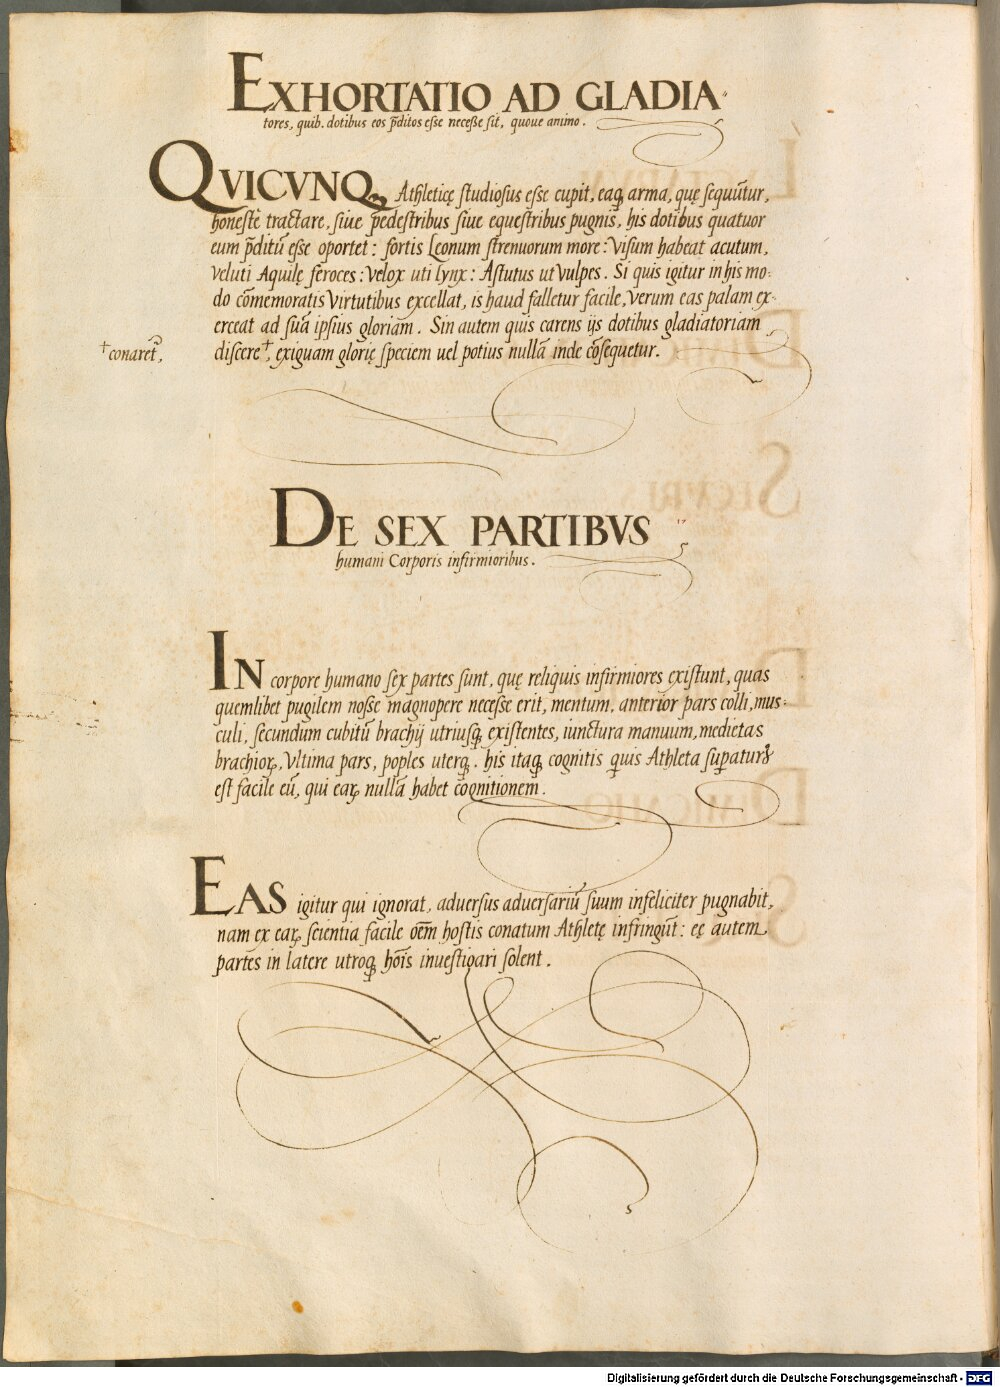 EXHORTATIO AD GLADIA-
tores, quib. dotibus eos p̄ditos esse neceße sit, quoue animo.
QVICVNQꝫ Athleticę studiosus esse cupit, eaqꝫ arma, quę sequūtur,
honestè tractare, siue pedestribus siue equestribus pugnis, his dotibus quatuor
eum p̄ditū eße oportet: fortis Leonum strenuorum more: Visum habeat acutum,
veluti Aquilę feroces: Velox uti lynx: Astutus ut Vulpes. Si quis igitur in his mo-
do cōmemoratis Virtutibus excellat, is haud falletur facile, verum eas palam ex-
erceat ad suā ipsius gloriam. Sin autem quis carens ijs dotibus gladiatoriam
†conaret̄,
discere†, exiguam glorię speciem uel potius nullā inde cōsequetur.
DE SEX PARTIBVS
17
humani Corporis infirmioribus.
IN corpore humano sex partes sunt, quę reliquis infirmiores existunt, quas
quemlibet pugilem nosse magnopere necesse erit, mentum, anterior pars colli, mus-
culi, secundum cubitū brachij utriusqꝫ existentes, iunctura manuum, medietas
brachioꝝ, Vltima pars, poples uterqꝫ. his itaqꝫ cognitis quis Athleta supatur?
est facile eū, qui eaꝝ nullā habet cognitionem.
EAS igitur qui ignorat, aduersus aduersariū suum infeliciter pugnabit,
nam ex eaꝝ scientia facile oēm hostis conatum Athletę infringūt: eę autem
partes in latere utroqꝫ hōis inuestigari solent.
Digitalisierung gefördert durch die Deutsche Forschungsgemeinschaft - DFG